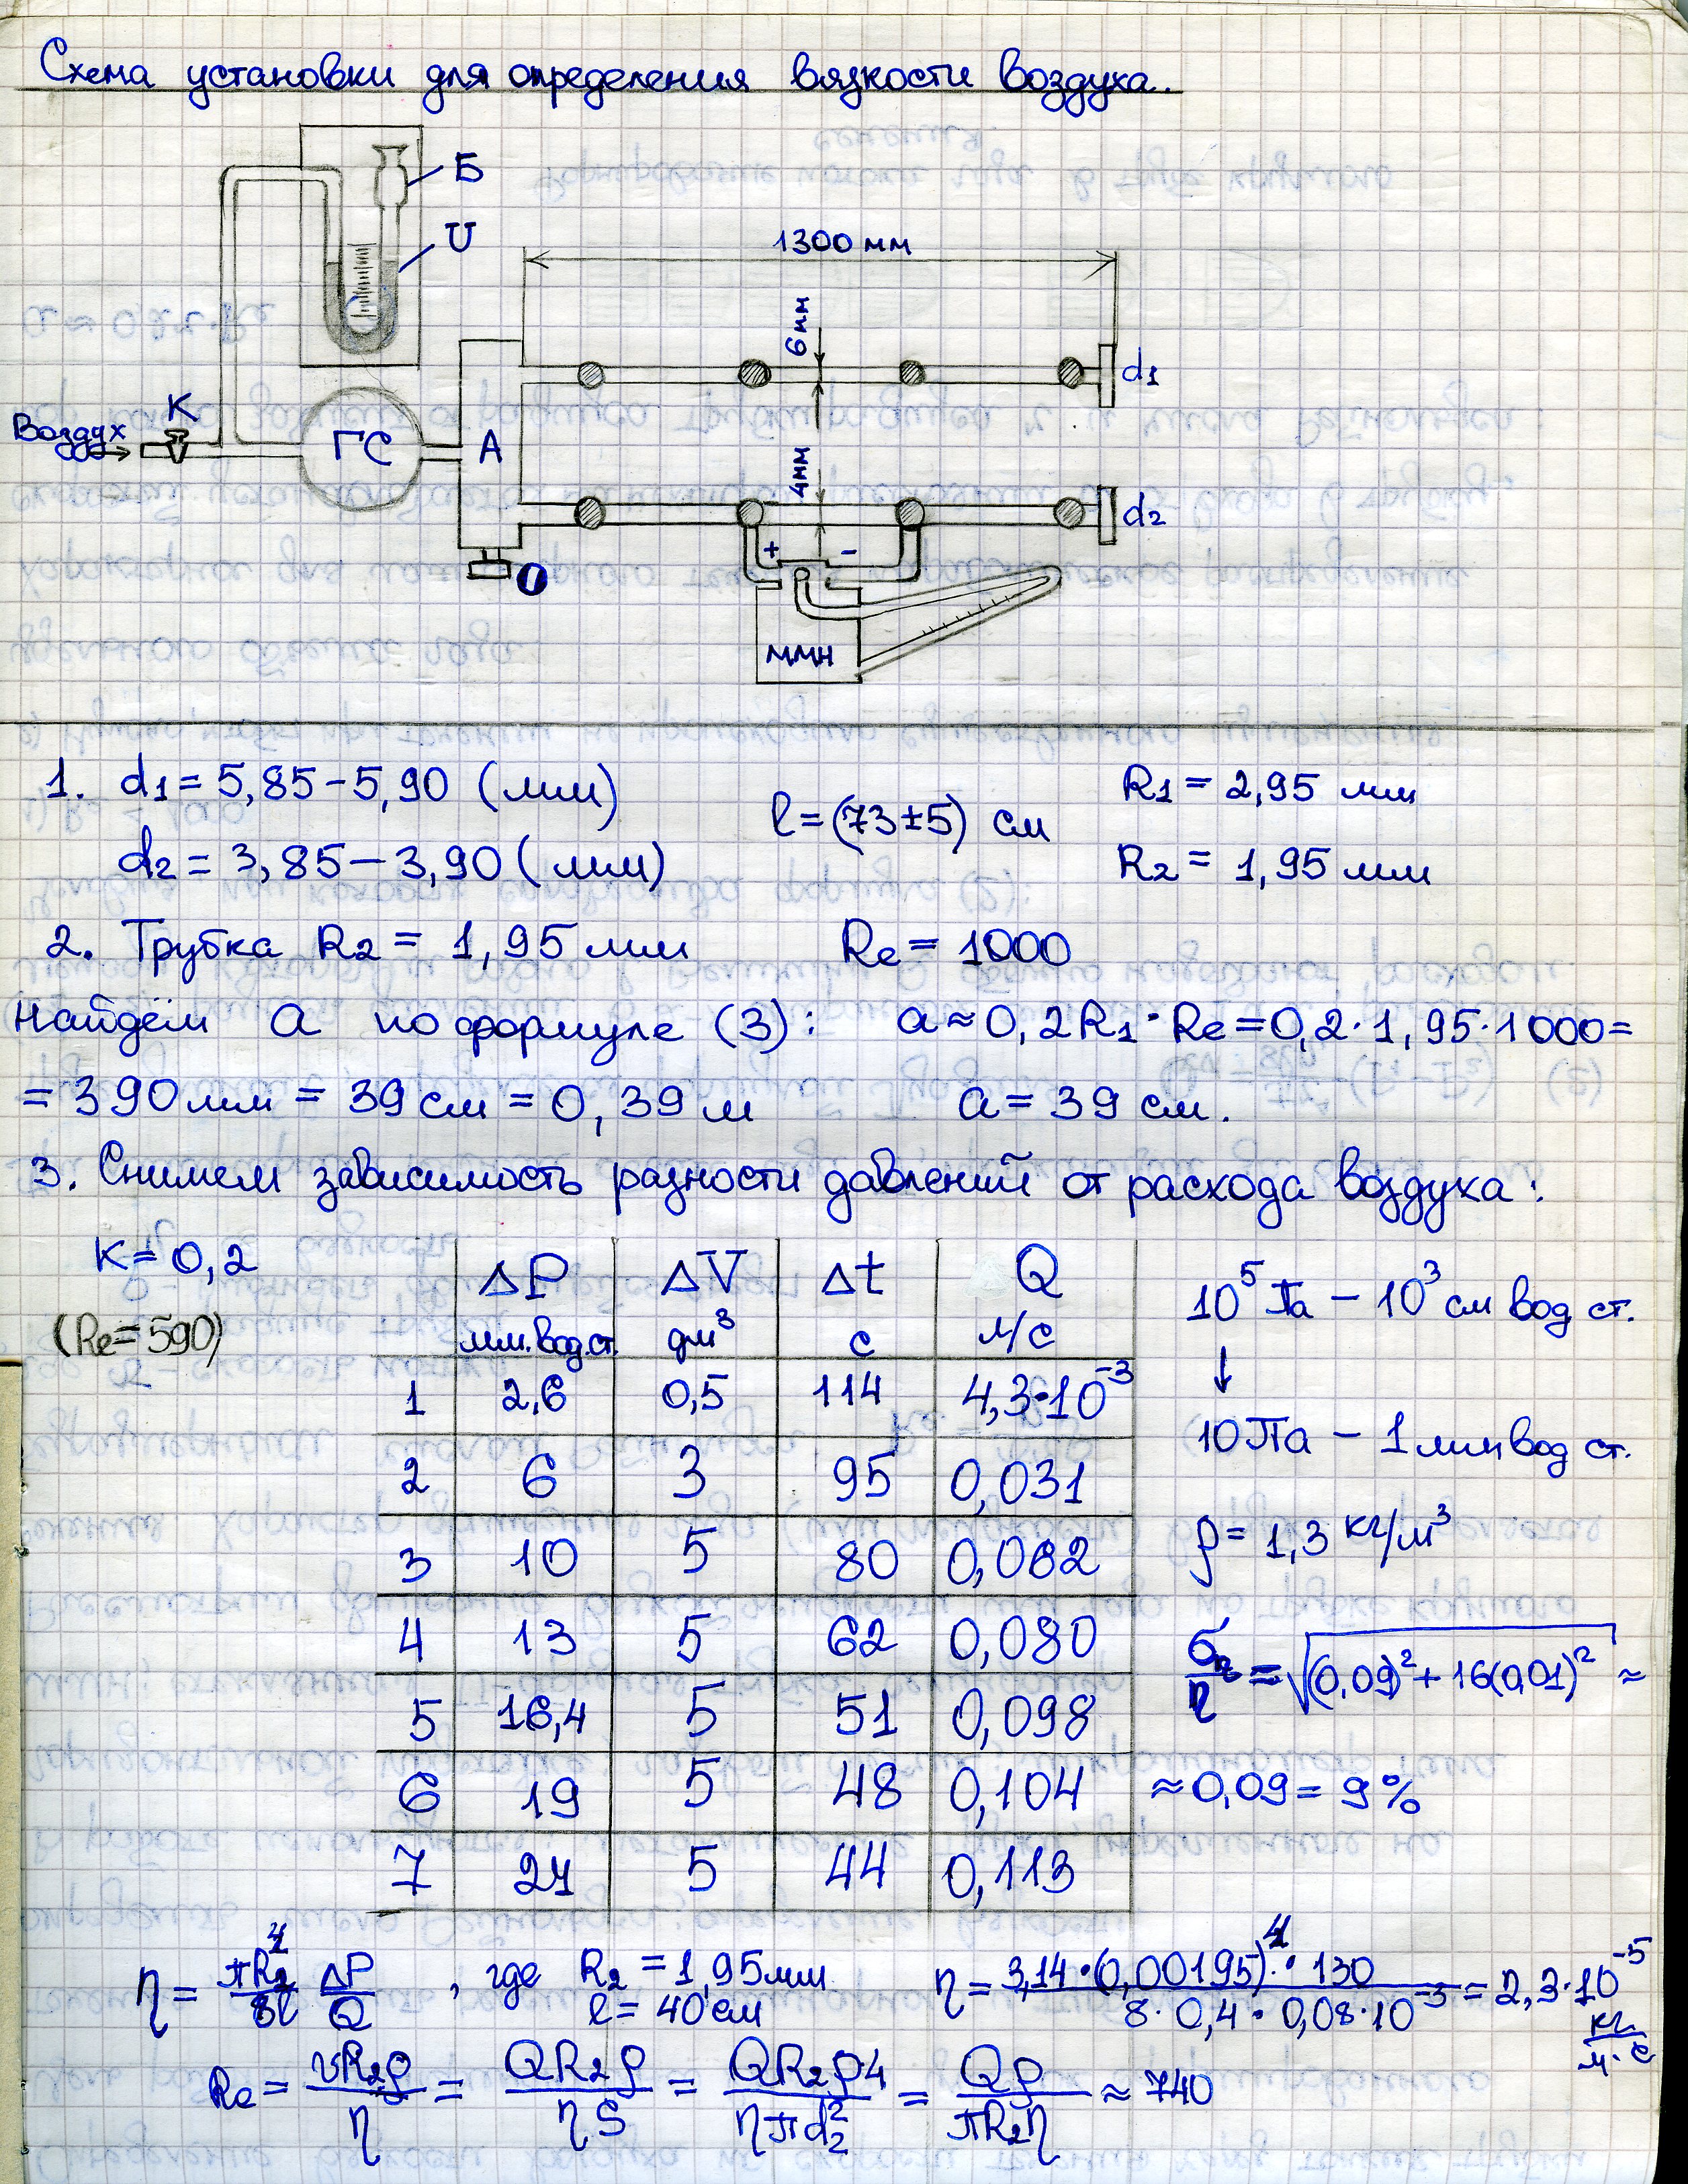 Схема установки для определения вязкости воздуха.
Б
U
1300 мм
6 мм
d1
К
Воздух
ГС
А
4мм
d2
+ -
О
ММН
1. d1 = 5,85 – 5,90 (мм)
d2 = 3,85 – 3,90 (мм)
l = (73 ± 5) см
R1 = 2,95 мм
R2 = 1,95 мм
2. Трубка R2 = 1,95 мм Re = 1000
Найдём a по формуле (3): a ≈ 0,2R1 · Re = 0,2 · 1,95 · 1000 =
= 390 мм = 39 см = 0,39 м a = 39 см.
3. Снимем зависимость разности давлений от расхода воздуха:
K = 0,2
(Re = 590)
ΔP ΔV Δt Q
мм.вод.ст. дм³ с л/с
1 2,6 0,5 114 4,3·10⁻³
2 6 3 95 0,031
3 10 5 80 0,062
4 13 5 62 0,080
5 16,4 5 51 0,098
6 19 5 48 0,104
7 24 5 44 0,113
10⁵ Па – 10³ см вод ст.
↓
10 Па – 1 мм вод ст.
ρ = 1,3 кг/м³
ση/η = √((0,09)² + 16(0,01)²) ≈
≈ 0,09 = 9%
η = πR2⁴/8l ΔP/Q , где R2 = 1,95 мм
l = 40 см
η = 3,14·(0,00195)⁴·130 / 8·0,4·0,08·10⁻³ = 2,3·10⁻⁵ кг/м·с
Re = vR2ρ/η = QR2ρ/ηS = QR2ρ4/ηπd2² = Qρ/πR2η ≈ 740